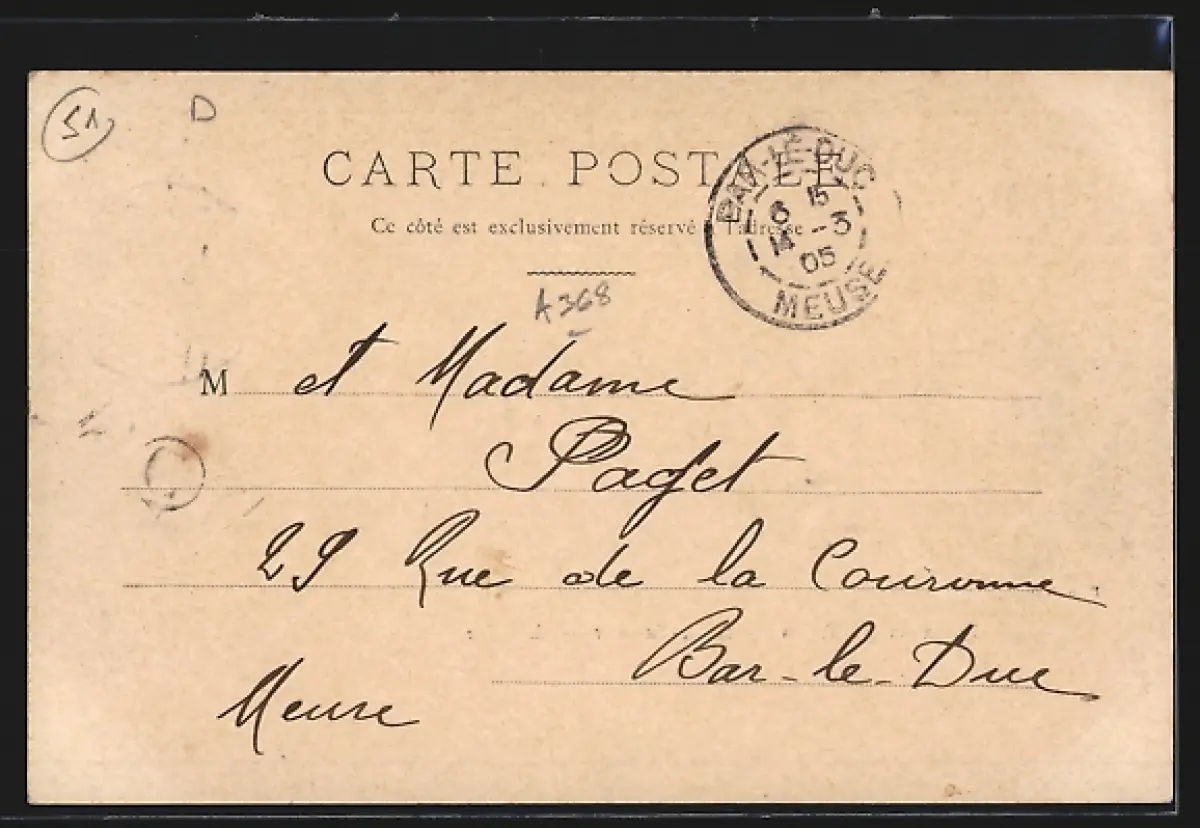 51
D
CARTE POSTALE
Ce côté est exclusivement réservé à l'adresse
BAR-LE-DUC
6 15
14 -3
05
MEUSE
A368
M et Madame
Paget
29 Rue de la Couronne
Bar-le-Duc
Meuse